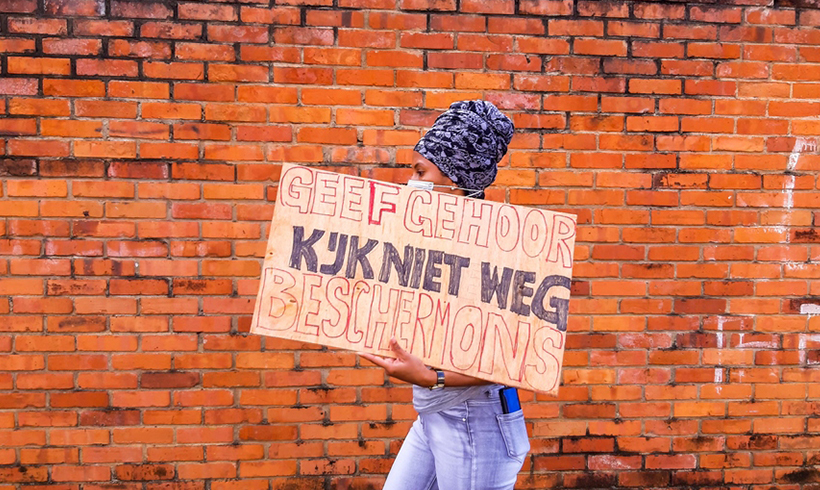 GEEF GEHOOR
KIJK NIET WEG
BESCHERM ONS